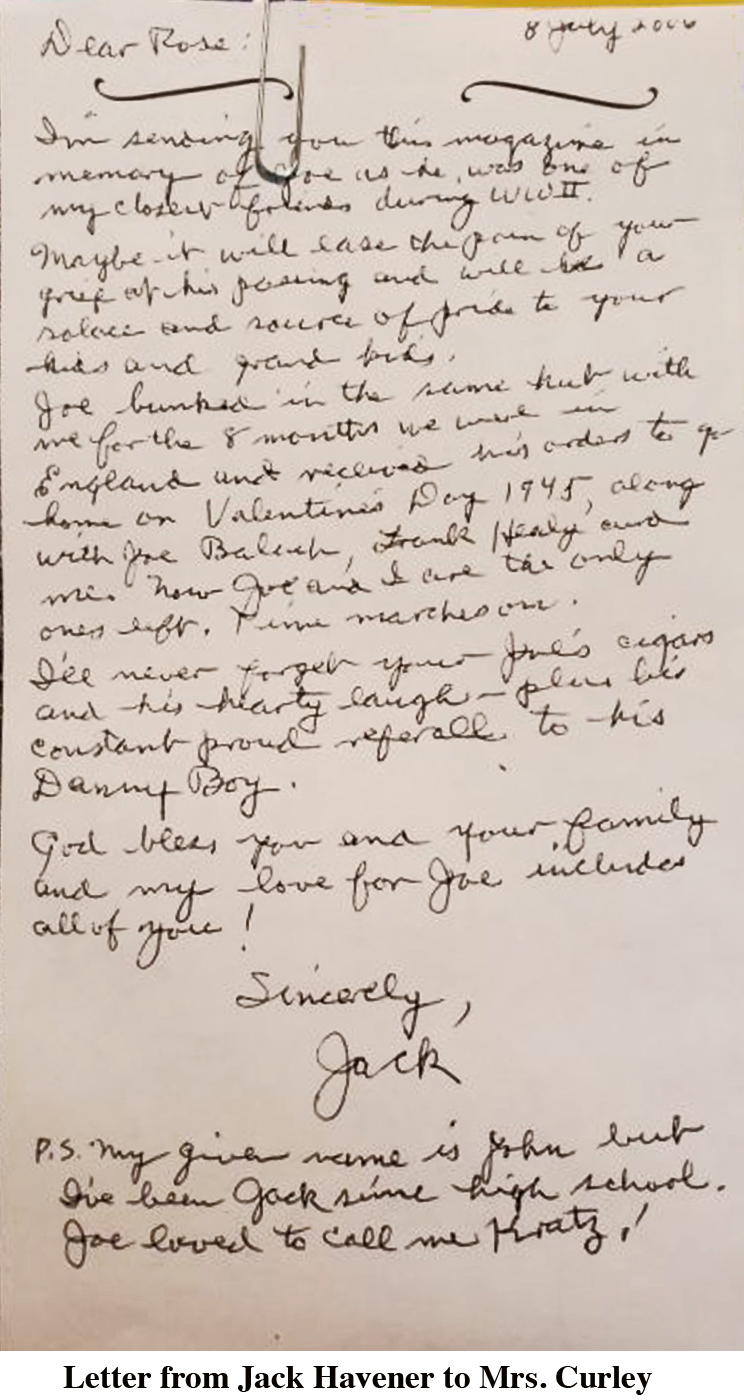 Dear Rose: 8 July 2006
I'm sending you this magazine in
memory of Joe as he was one of
my closest friends during WWII.
Maybe it will ease the pain of your
grief at his passing and will be a
solace and source of pride to your
kids and grand kids.
Joe bunked in the same hut with
me for the 8 months we were in
England and received his orders to go
home on Valentine's Day 1945, along
with Joe Frank Healy and
me. Now Joe and I are the only
ones left. Time marches on.
I'll never forget your Joe's cigars
and his hearty laugh - plus his
constant proud referall to his
Danny Boy.
God bless you and your family
and my love for Joe includes
all of you!
Sincerely,
Jack
P.S. My given name is John but
I've been Jack since high school.
Joe loved to call me Kratz!
Letter from Jack Havener to Mrs. Curley